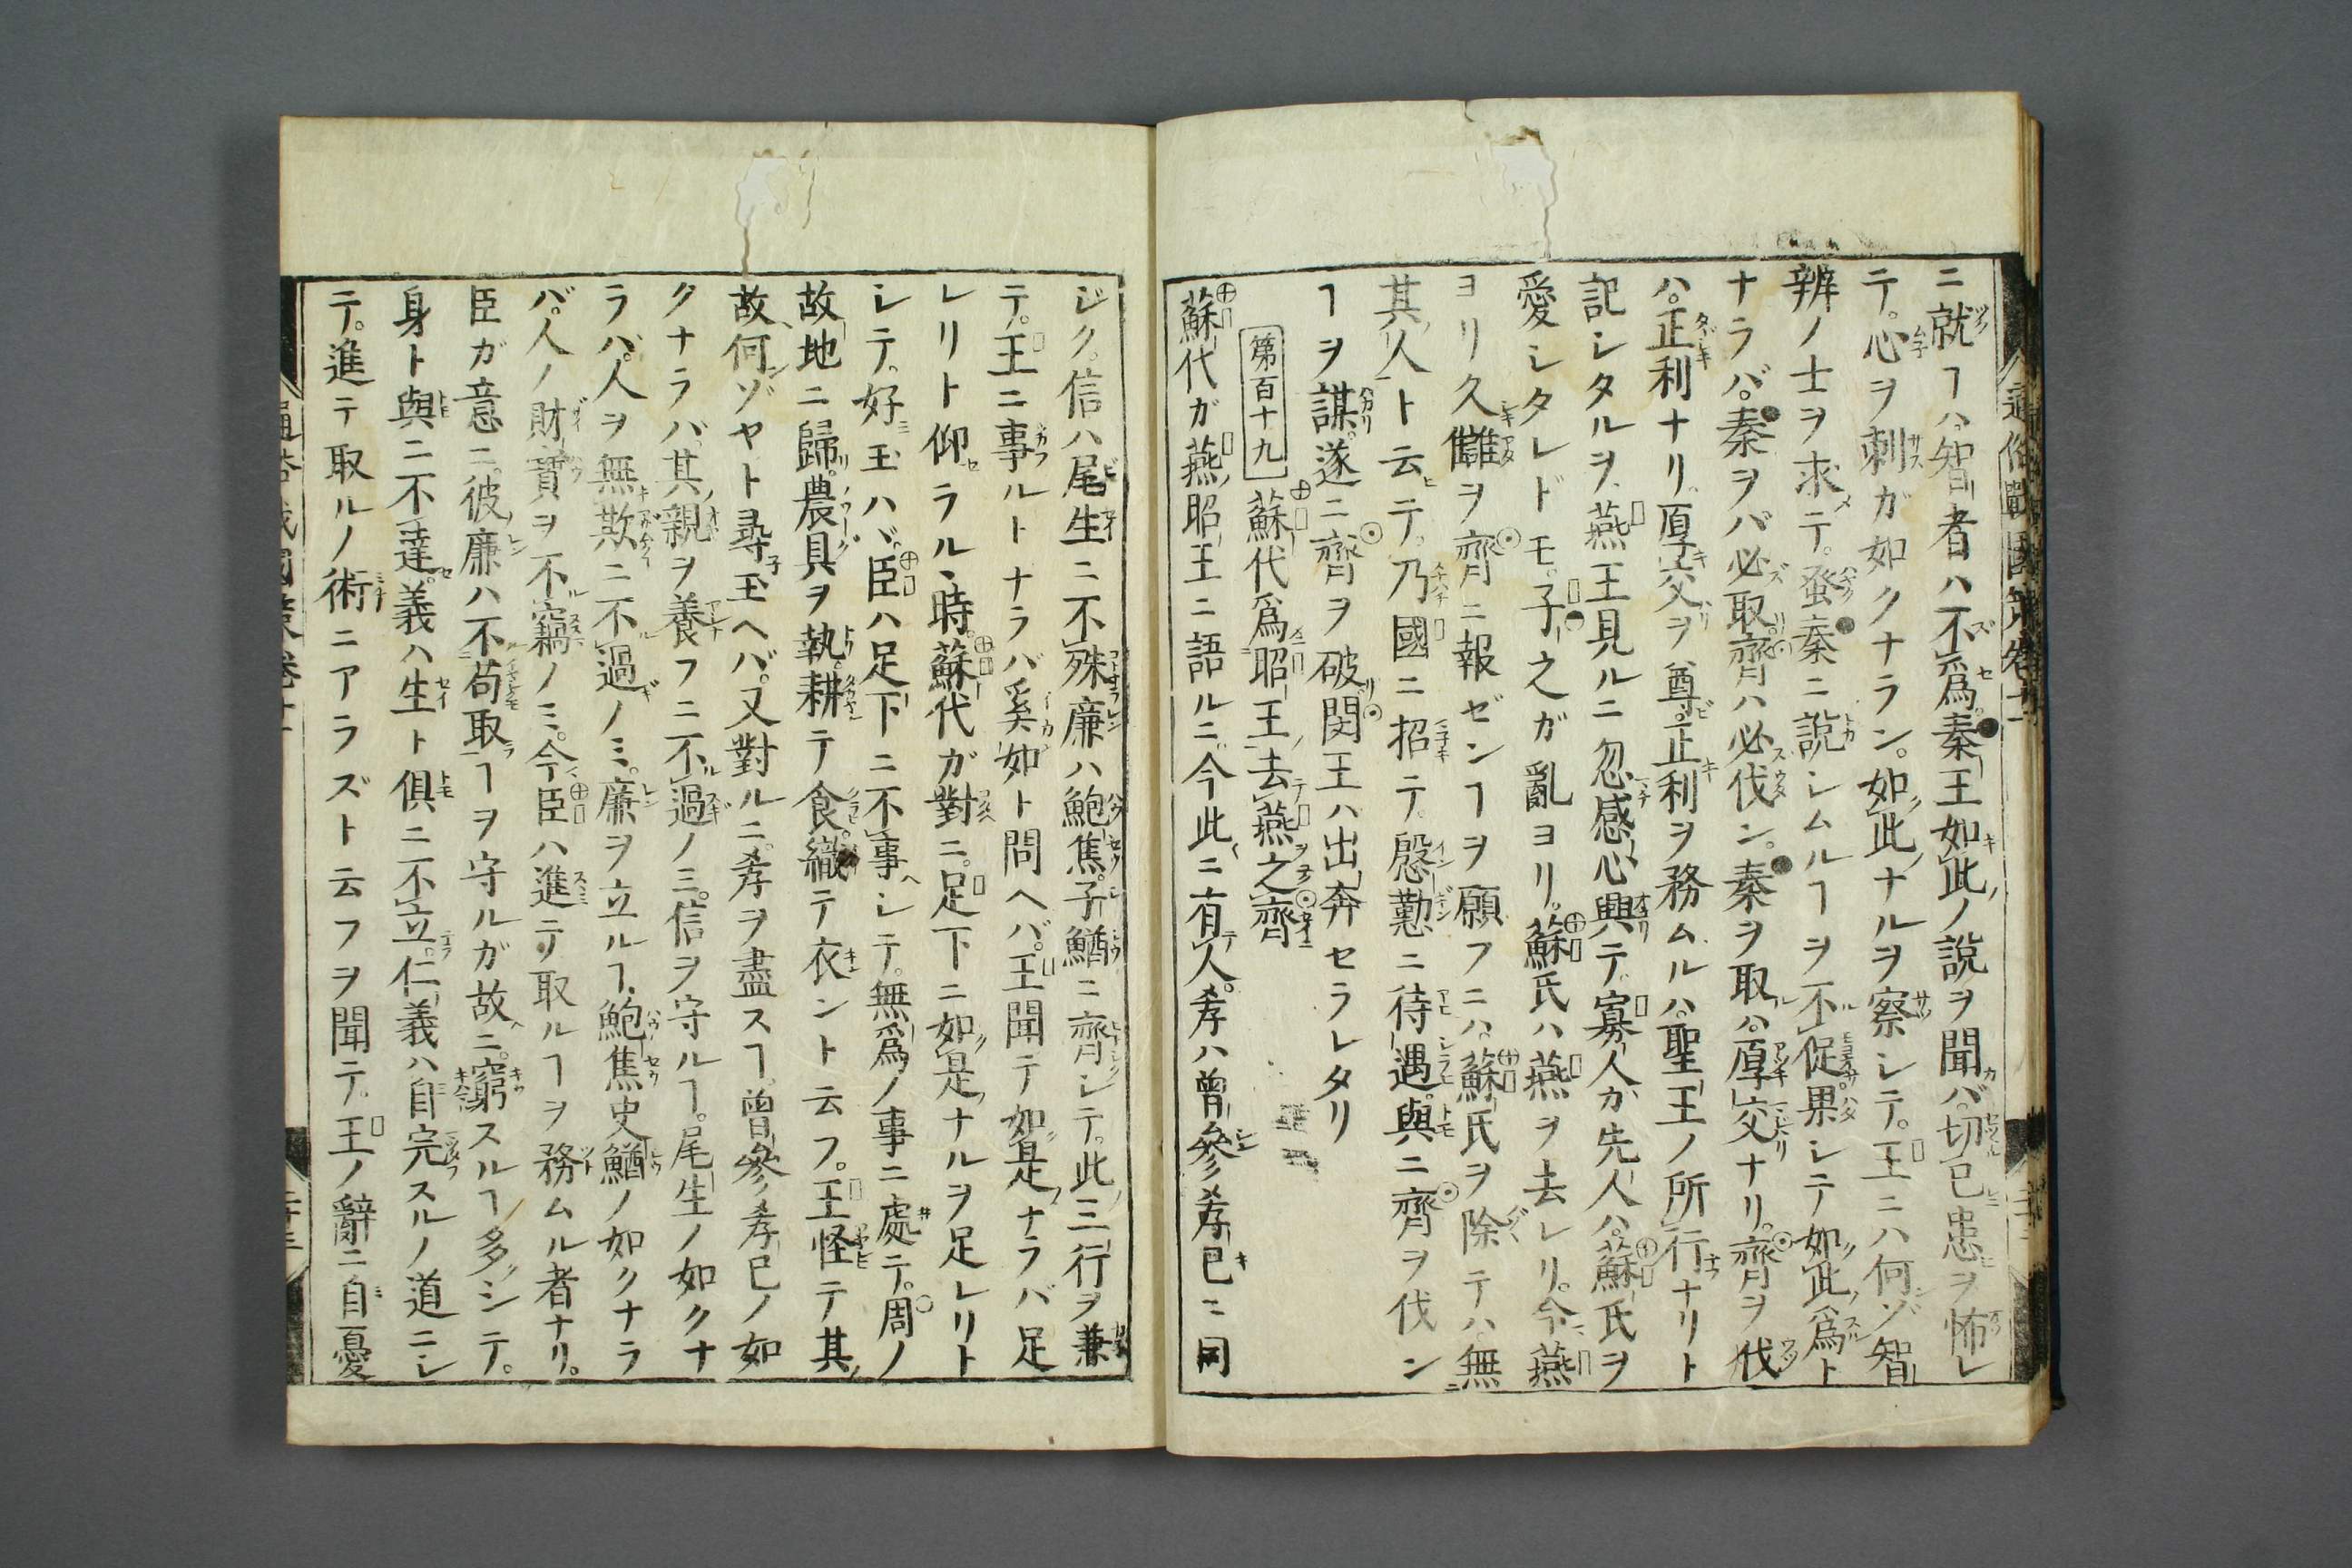 通俗戰國策卷十一
ニ就ヿハ。智者ハ不爲。秦王如此ノ說ヲ聞バ。切已患ヲ怖レ
テ。心ヲ刺ガ如クナラン。如此ナルヲ察シテ。王ニハ何ゾ智
辨ノ士ヲ求テ。蚤秦ニ說シムルヿヲ不促。果シテ如此爲ト
ナラバ。秦ヲバ必取。齊ハ必伐ン。秦ヲ取ハ。厚交ナリ。齊ヲ伐
ハ。正利ナリ。厚交ヲ尊。正利ヲ務ムルハ。聖王ノ所行ナリト
記シタルヲ。燕王見ルニ忽感心興テ。寡人ガ先人ハ。蘇氏ヲ
愛シタレドモ。子之ガ亂ヨリ。蘇氏ハ燕ヲ去レリ。今燕
ヨリ久讎ヲ齊ニ報ゼンヿヲ願フニハ。蘇氏ヲ除テハ。無
其人ト云テ。乃國ニ招テ。慇懃ニ待遇。與ニ齊ヲ伐ン
ヿヲ謀。遂ニ齊ヲ破。閔王ハ出奔セラレタリ
第百十九 蘇代爲昭王去燕之齊
蘇代ガ燕昭王ニ語ルニ。今此ニ有人。孝ハ曾參孝已ニ同
ジク。信ハ尾生ニ不殊。廉ハ鮑焦子鰌ニ齊シテ。此三行ヲ兼
テ。王ニ事ルトナラバ奚如ト問ヘバ。王聞テ如是ナラバ足
レリト仰ラルヽ時。蘇代ガ對ニ。足下ニ如是ナルヲ足レリト
シテ。好玉ハヾ。臣ハ足下ニ不事シテ。無爲ノ事ニ處テ。周ノ
故地ニ歸。農具ヲ執。耕テ食。織テ衣ント云フ。王怪テ其
故何ゾヤト尋玉ヘバ。又對ルニ。孝ヲ盡スヿ。曾參孝已ノ如
クナラバ。其親ヲ養フニ不過ノミ。信ヲ守ルヿ。尾生ノ如クナ
ラバ。人ヲ無欺ニ不過ノミ。廉ヲ立ルヿ。鮑焦史鰌ノ如クナラ
バ。人ノ財寶ヲ不竊ノミ。今臣ハ進テ取ルヿヲ務ムル者ナリ。
臣ガ意ニ。彼廉ハ不苟取ヿヲ守ルガ故ニ。窮スルヿ多シテ。
身ト與ニ不達。義ハ生ト俱ニ不立。仁義ハ自完スルノ道ニシ
テ。進テ取ルノ術ニアラズト云フヲ聞テ。王ノ辭ニ自憂